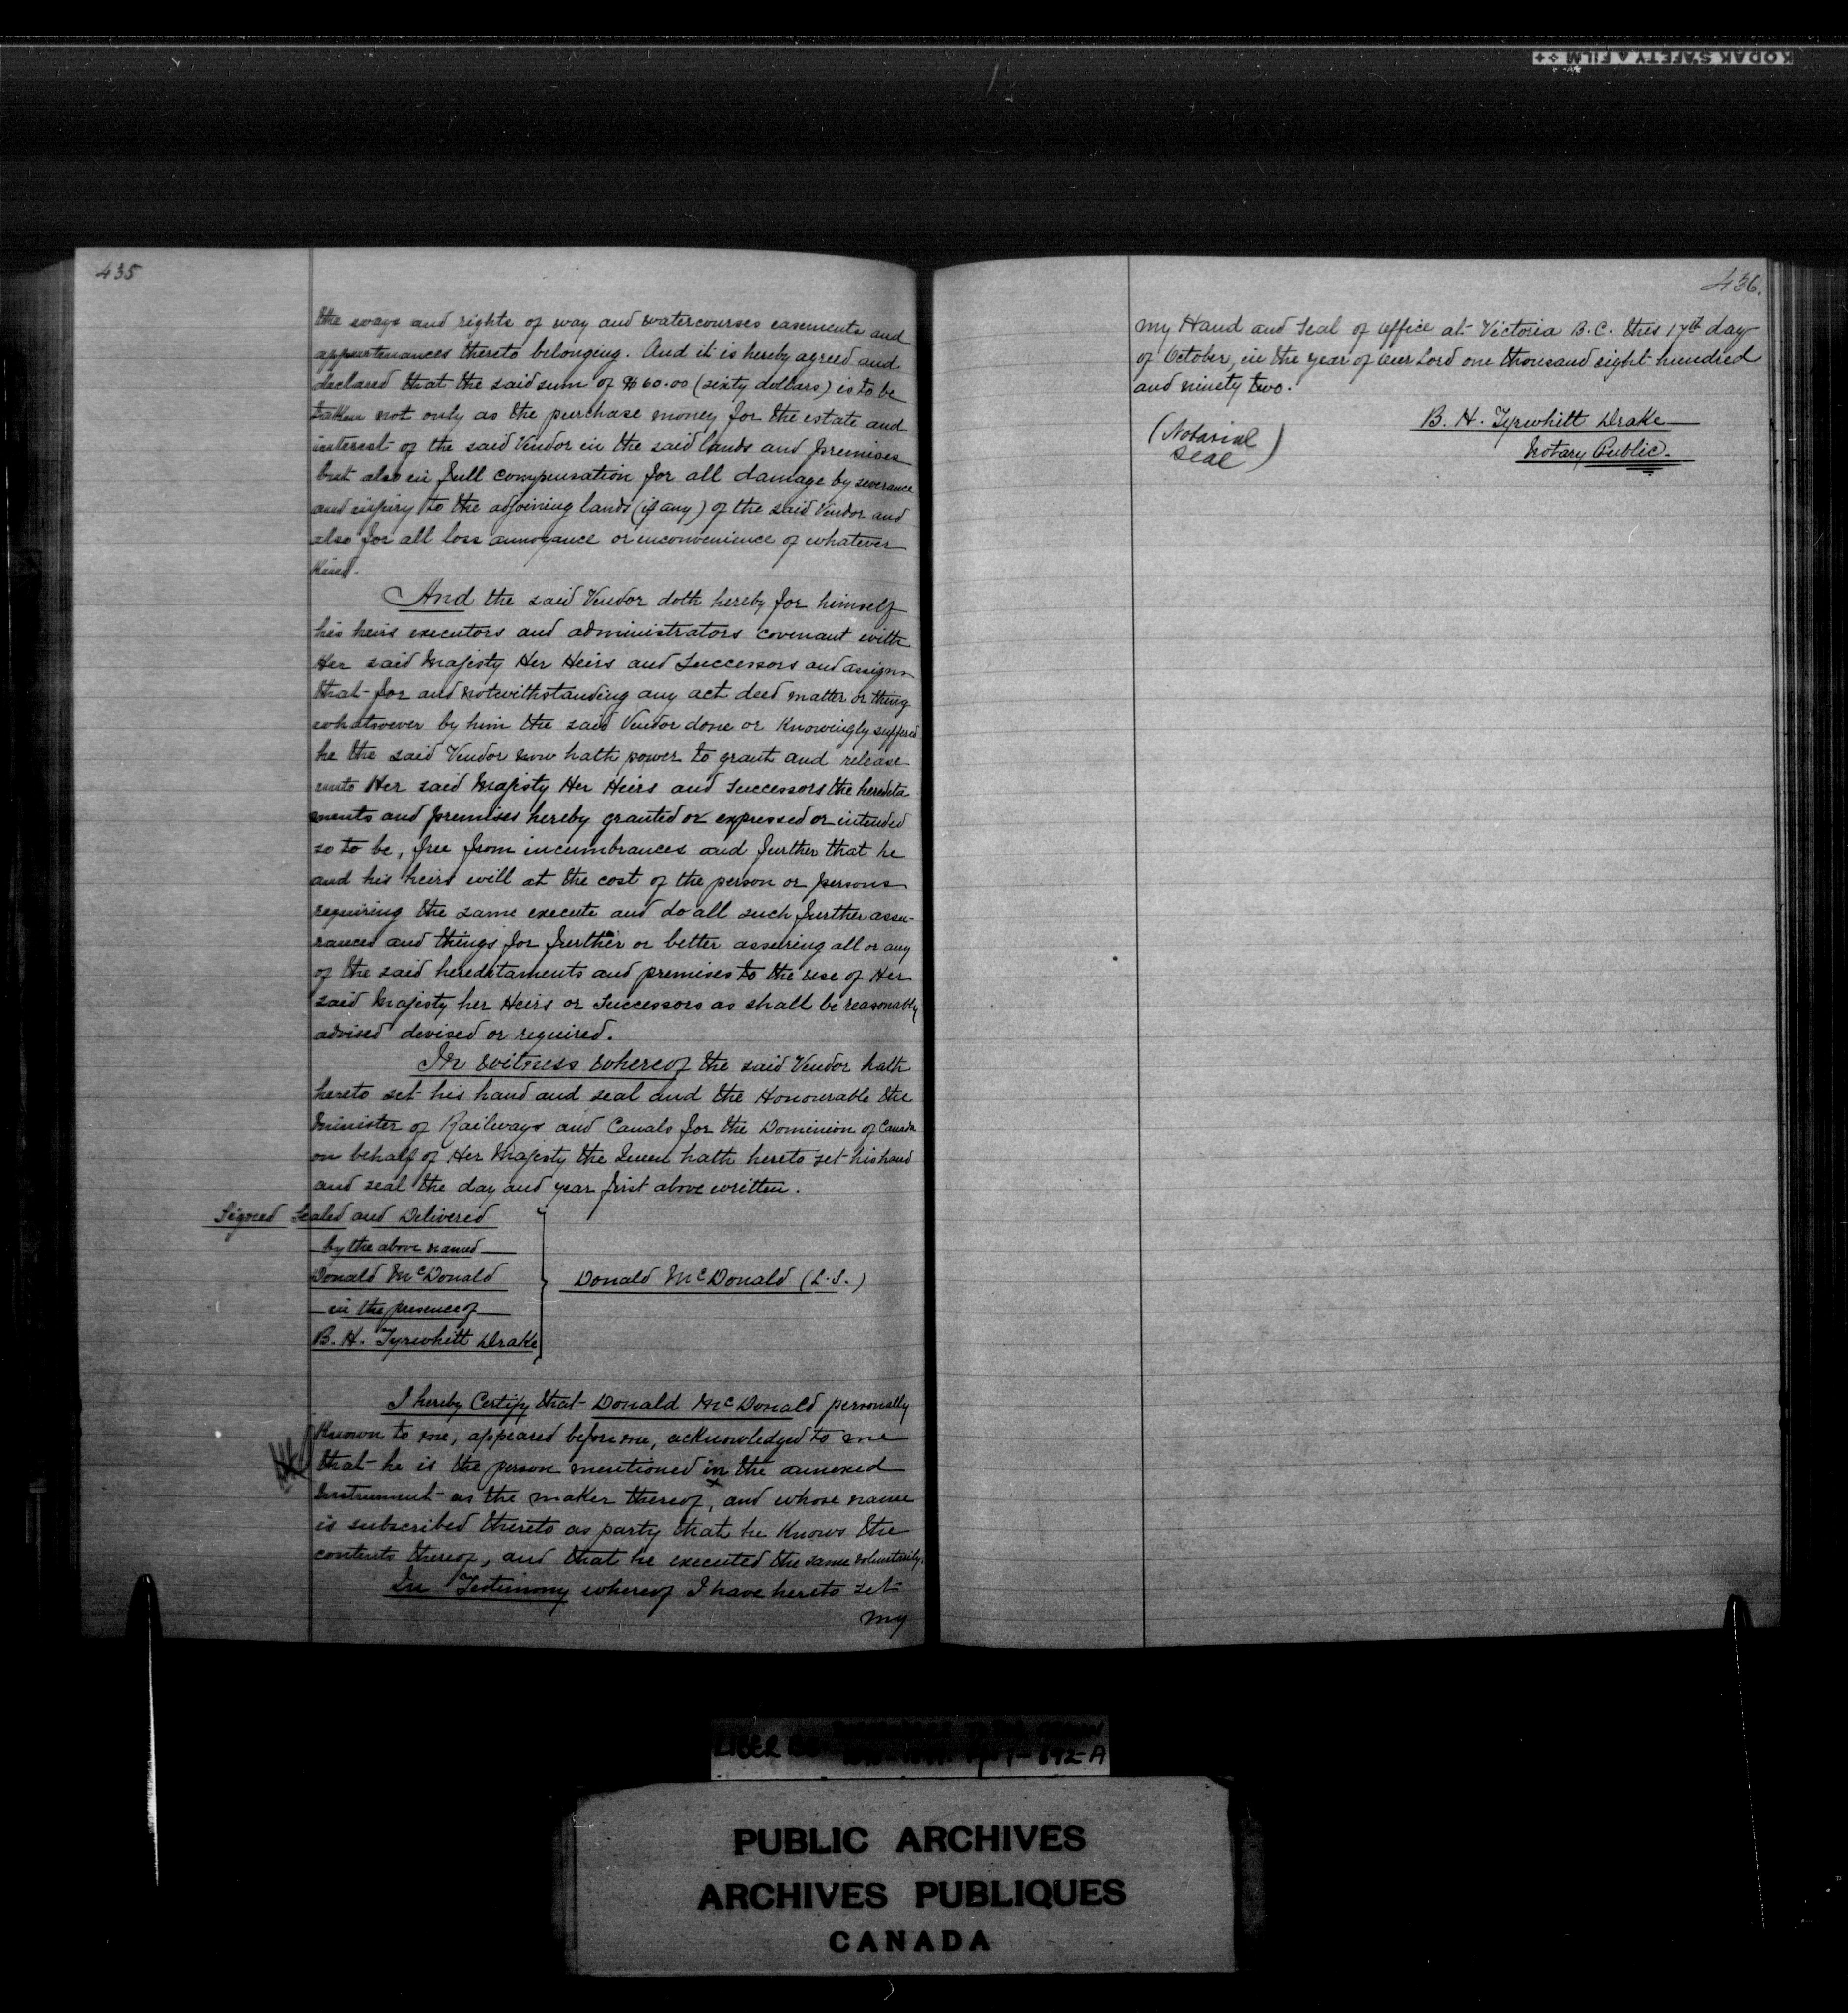 KODAK SAFETY FILM
435
the ways and rights of way and watercourses easements and
appurtenances thereto belonging. And it is hereby agreed and
declared that the said sum of $60.00 (sixty dollars) is to be
taken not only as the purchase money for the estate and
interest of the said Vendor in the said lands and premises
but also in full compensation for all damage by severance
and injury to the adjoining lands (if any) of the said Vendor and
also for all loss annoyance or inconvenience of whatever
kind.
And the said Vendor doth hereby for himself
his heirs executors and administrators covenant with
Her said Majesty Her Heirs and Successors and assigns
that for and notwithstanding any act deed matter or thing
whatsoever by him the said Vendor done or knowingly suffered
he the said Vendor now hath power to grant and release
unto Her said Majesty Her Heirs and Successors the heredita
ments and premises hereby granted or expressed or intended
so to be, free from incumbrances and further that he
and his heirs will at the cost of the person or persons
requiring the same execute and do all such further assu-
rances and things for further or better assuring all or any
of the said hereditaments and premises to the use of Her
said Majesty her Heirs or Successors as shall be reasonably
advised devised or required.
In witness whereof the said Vendor hath
hereto set his hand and seal and the Honourable the
Minister of Railways and Canals for the Dominion of Canada
on behalf of Her Majesty the Queen hath hereto set his hand
and seal the day and year first above written.
Signed Sealed and Delivered
by the above named
Donald McDonald
in the presence of
B. H. Tyrwhitt Drake
Donald McDonald (L.S.)
I hereby Certify that Donald McDonald personally
known to me, appeared before me, acknowledged to me
that he is the person mentioned in the annexed
Instrument as the maker thereof, and whose name
is subscribed thereto as party that he knows the
contents thereof, and that he executed the same voluntarily.
In Testimony whereof I have hereto set
my
436.
my Hand and Seal of Office at Victoria B.C. this 17th day
of October, in the year of Our Lord one thousand eight hundred
and ninety two.
(Notarial
Seal)
B. H. Tyrwhitt Drake
Notary Public.
LIBER
692-A
PUBLIC ARCHIVES
ARCHIVES PUBLIQUES
CANADA